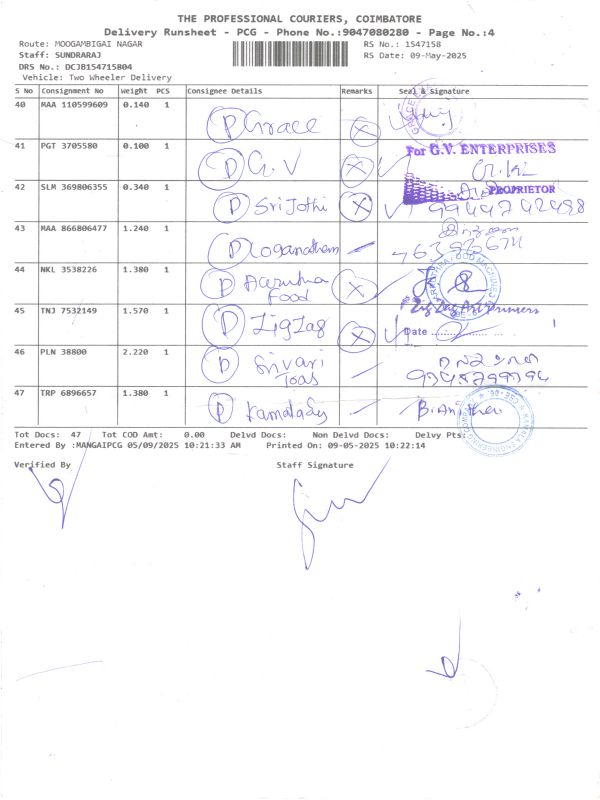 THE PROFESSIONAL COURIERS, COIMBATORE
Delivery Runsheet - PCG - Phone No.:9047080280 - Page No.:4
Route: MOOGAMBIGAI NAGAR
RS No.: 1547158
Staff: SUNDRARAJ
RS Date: 09-May-2025
DRS No.: DCJB154715804
Vehicle: Two Wheeler Delivery
S No Consignment No Weight PCS Consignee Details Remarks Seal & Signature
40 MAA 110599609 0.140 1 P Grace X
41 PGT 3705580 0.100 1 P G.V X For G.V. ENTERPRISES
PROPRIETOR
42 SLM 369806355 0.340 1 P Sri Jothi X 9944742498
43 MAA 866806477 1.240 1 P Loganathan
44 NKL 3538226 1.380 1 P Food X
45 TNJ 7532149 1.570 1 P Zigzag X Date
46 PLN 38800 2.220 1 P Srivari
47 TRP 6896657 1.380 1 P
Tot Docs: 47 Tot COD Amt: 0.00 Delvd Docs: Non Delvd Docs: Delvy Pts:
Entered By :MANGAIPCG 05/09/2025 10:21:33 AM Printed On: 09-05-2025 10:22:14
Verified By Staff Signature